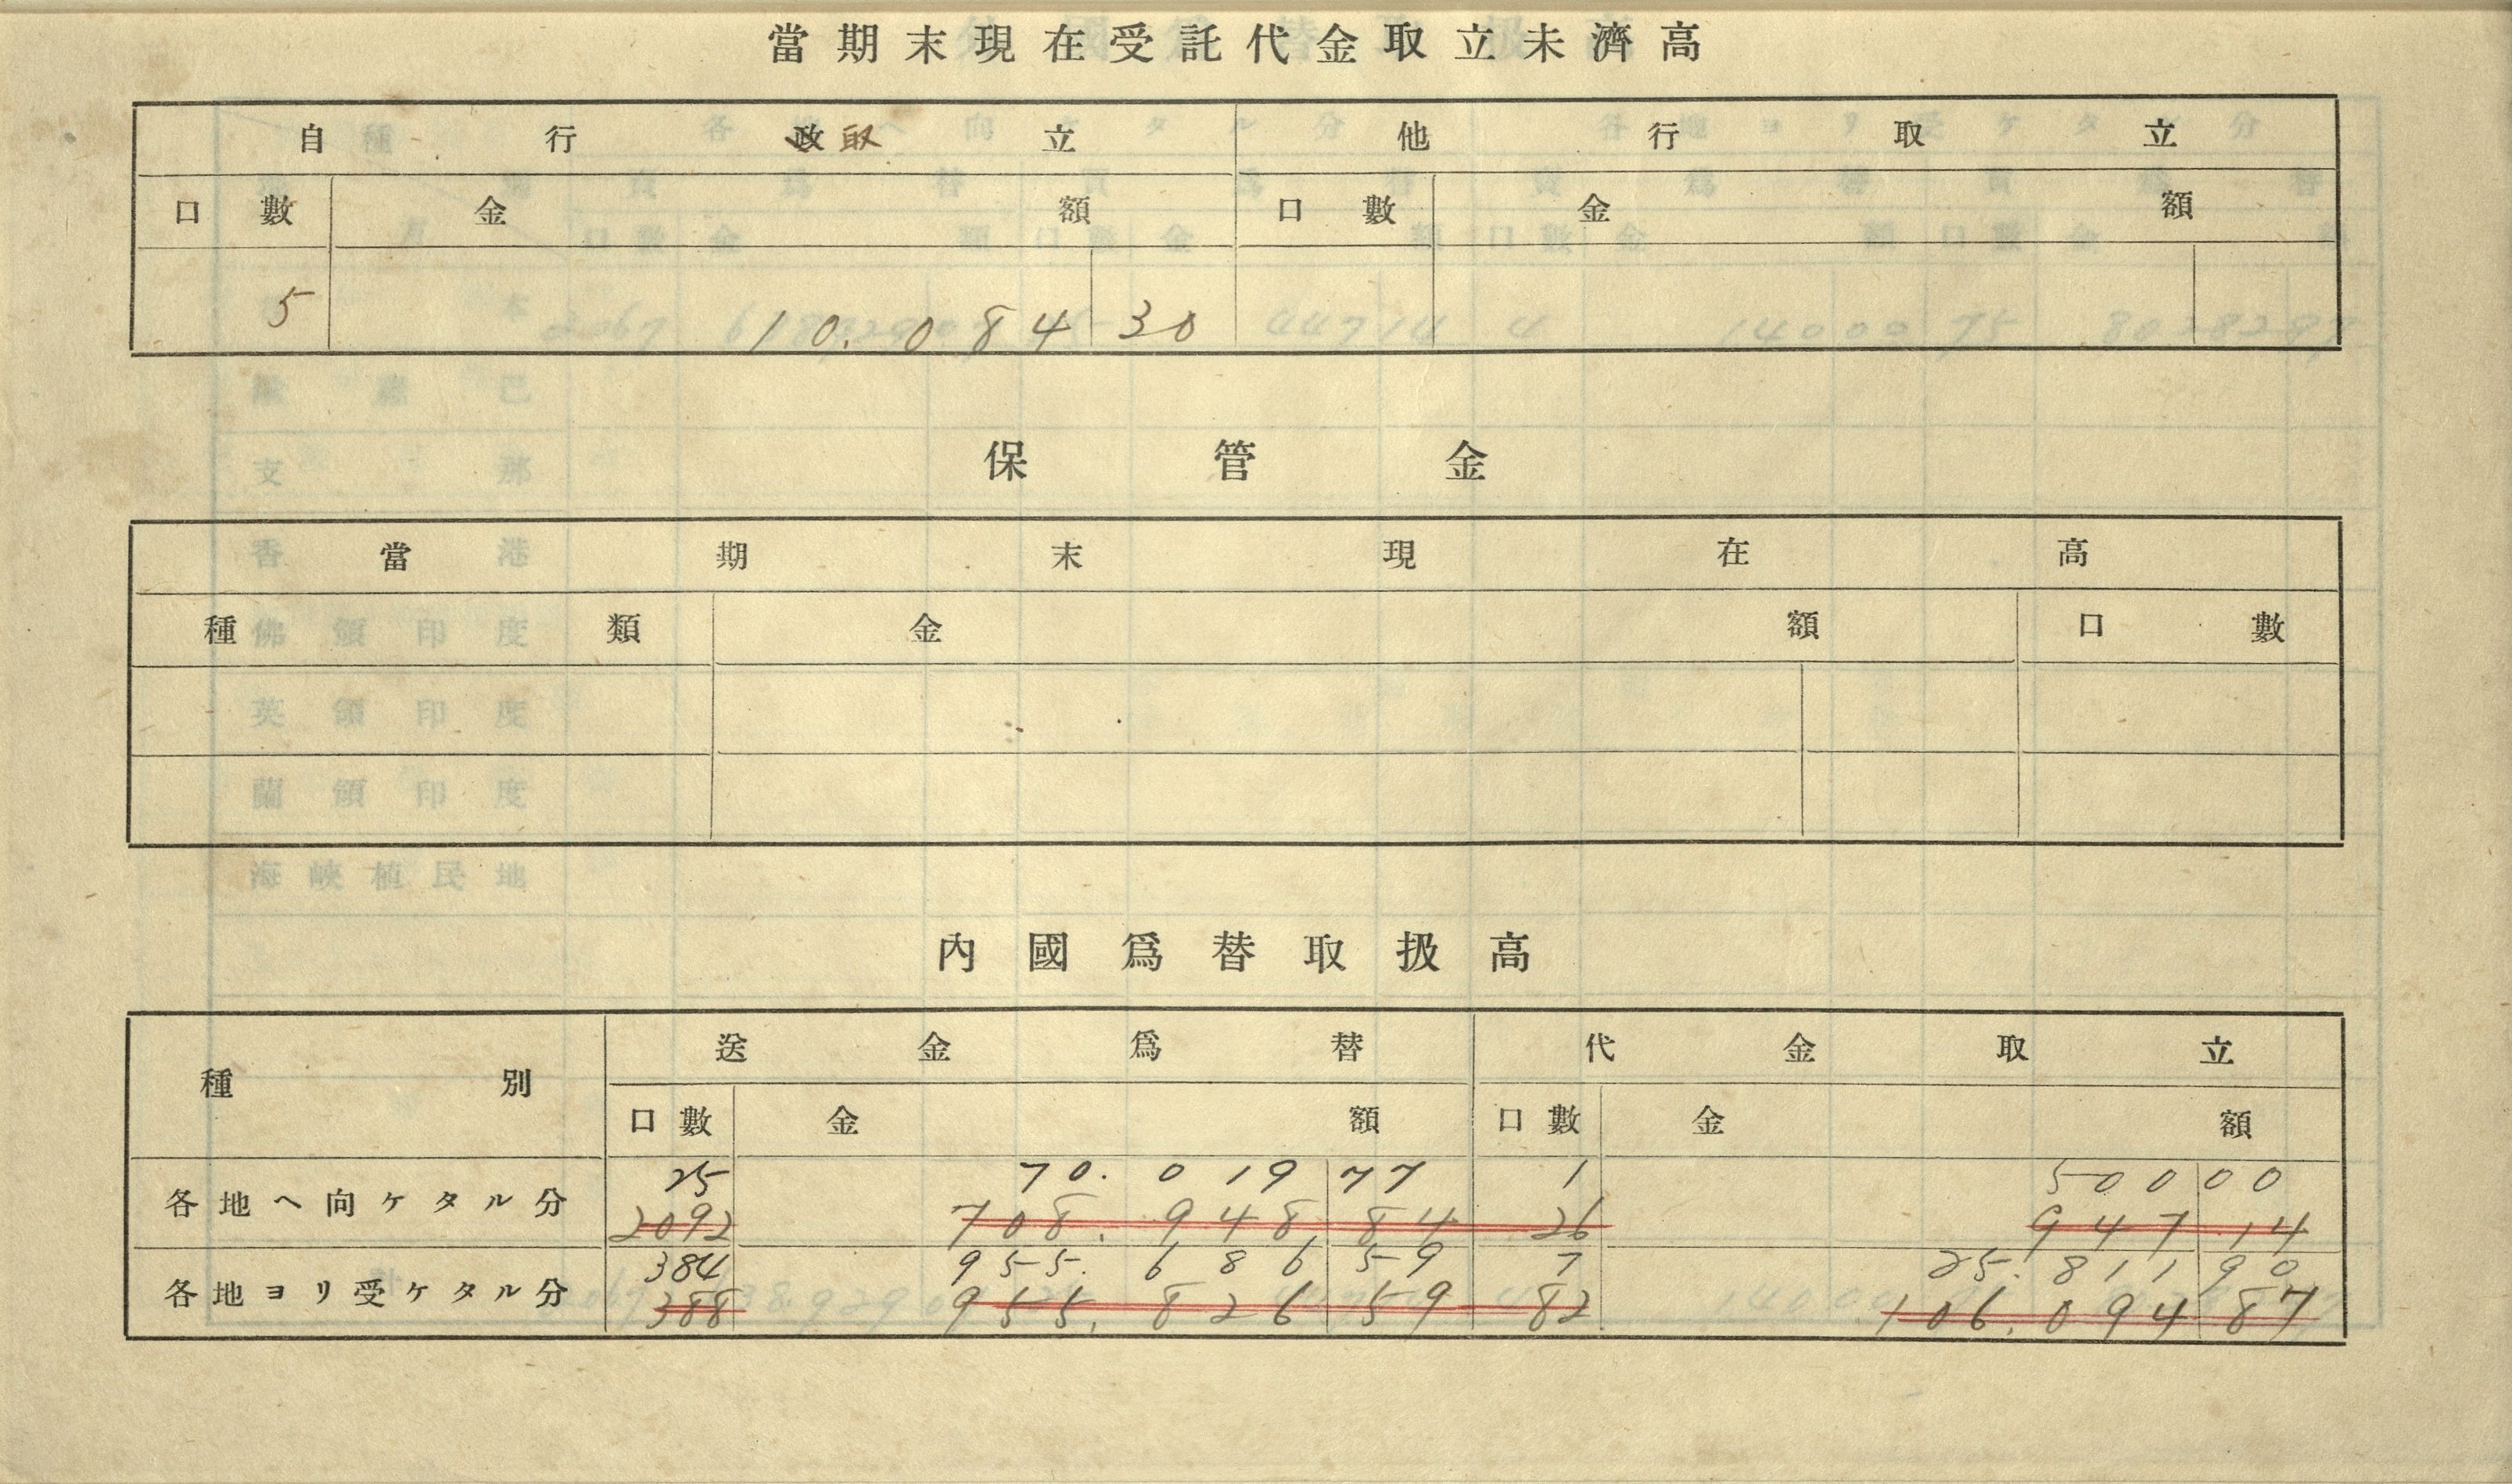 當期末現在受託代金取立未濟高
自行政取立 他行取立
口數 金額 口數 金額
5 10.084 30
保管金
當期末現在高
種類 金額 口數
內國爲替取扱高
種別 送金爲替 代金取立
口數 金額 口數 金額
25 70.019 77 1 500 00
各地ヘ向ケタル分 2092 708.948 84 26 947 14
384 955.686 59 7 25.811 90
各地ヨリ受ケタル分 388 955.826 59 82 106.094 87